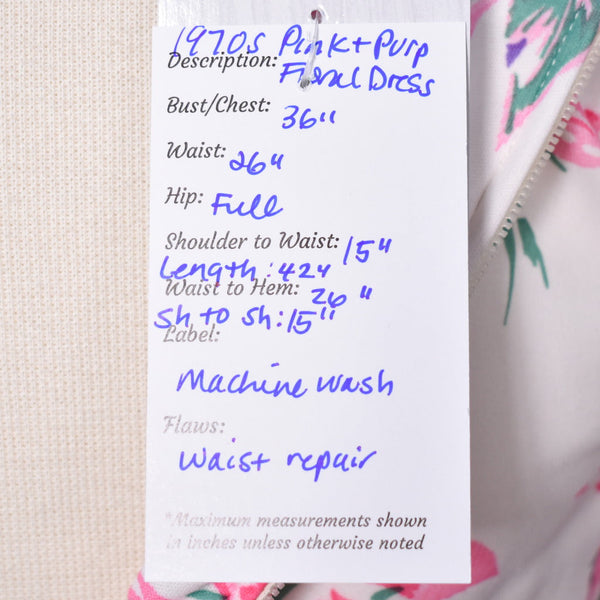 1970s Pink + Purp
Description: Floral Dress
Bust/Chest: 36"
Waist: 26"
Hip: Full
Shoulder to Waist: 15"
Length: 42"
Waist to Hem: 26"
Sh to sh: 15"
Label:
Machine wash
Flaws:
Waist repair
*Maximum measurements shown
in inches unless otherwise noted